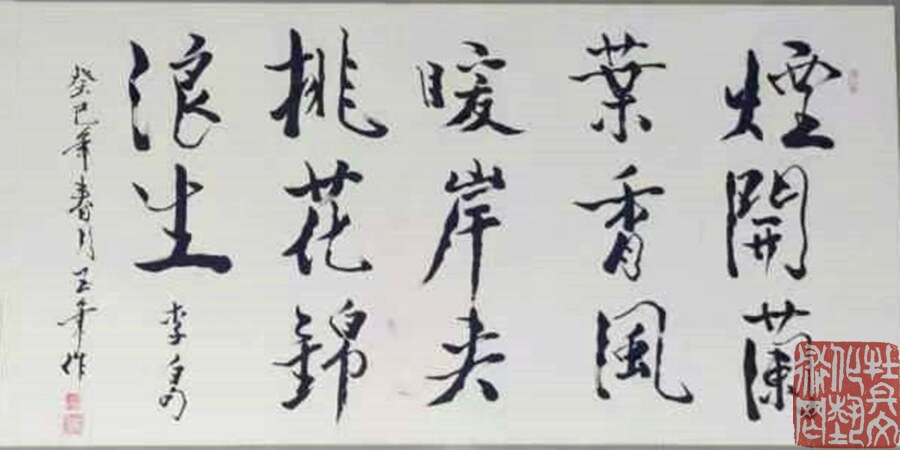 煙開蘭
葉香風
暖岸夾
桃花錦
浪生
李白
癸巳年春月
作